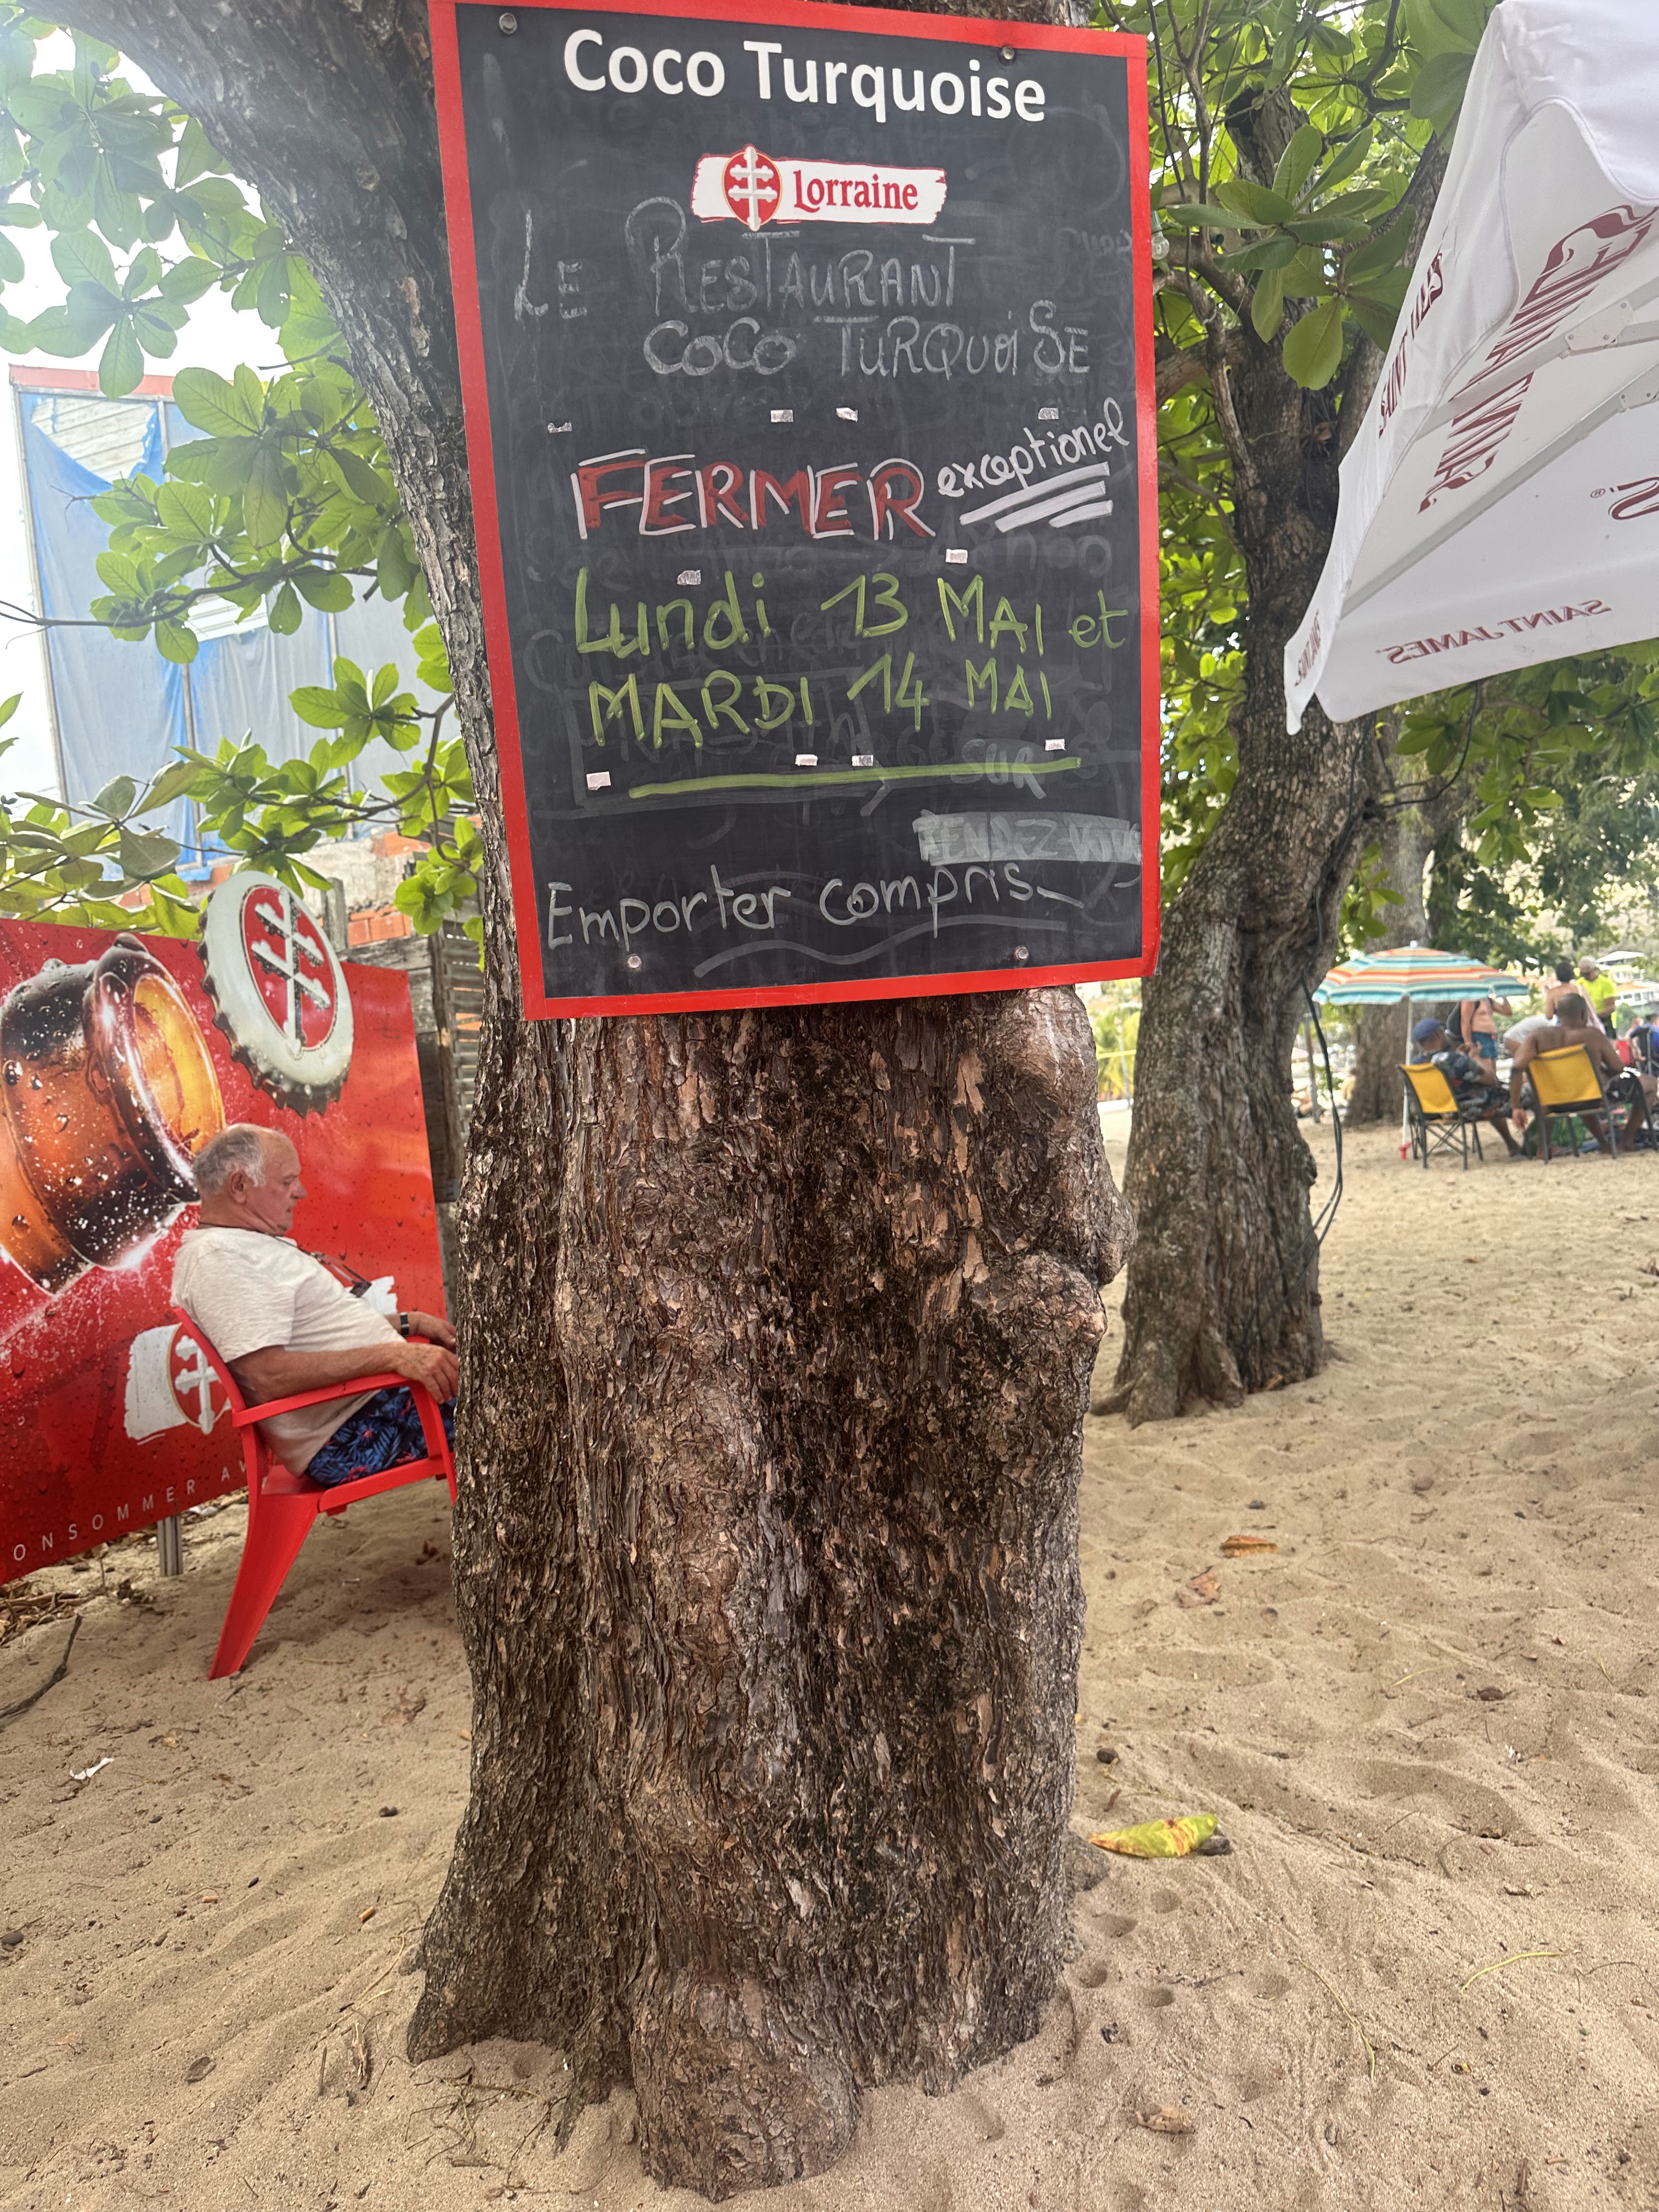 Coco Turquoise
Lorraine
LE RESTAURANT
COCO TURQUOISE
FERMER exceptionel
Lundi 13 MAI et
MARDI 14 MAI
SUR
RENDEZ-VOUS
Emporter compris
SAINT JAMES
ONSOMMER AV